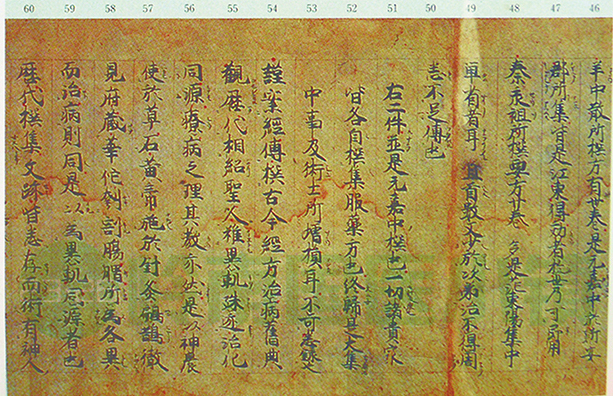 60 59 58 57 56 55 54 53 52 51 50 49 48 47 46
羊中散所撰方有卅卷是元嘉中於新安
郡所集皆是江東得効者於世乃可即用
秦承祖所撰要方廿卷 多是江東陽集中
單省者耳 首數不於次第治不得周
悉不足傳也
右二件並是元嘉中撰也一切諸貴家
皆各自撰集服藥方也終歸是大集
中事及術士所增損耳不可悉錄也
謹案經傳撰古今經方治病舊典
觀歷代相紹聖人雖異軌殊迹治化
同源療病之理其教亦然是以神農
使於草石黃帝施於針灸扁鵲徹
見府藏華佗刳割腸胃所為各異
而治病則同是以為異軌同源者也
歷代撰集文跡皆悉存而術有神人